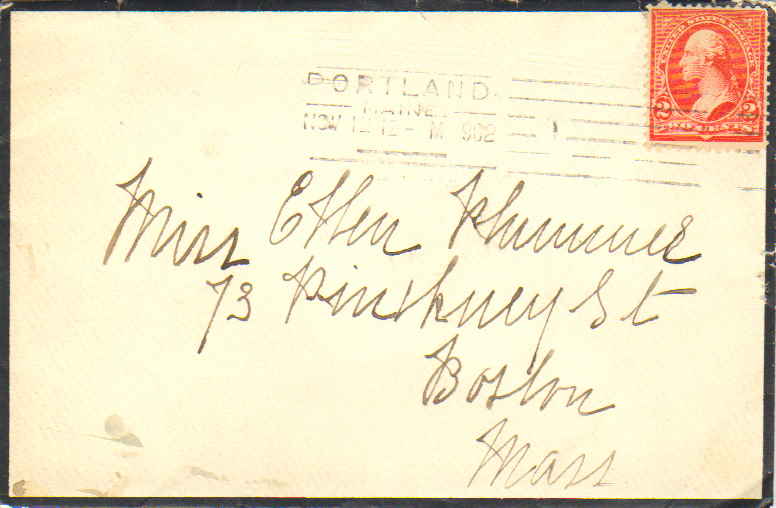 PORTLAND
MAINE
NOV 12 12 - M 902 1
UNITED STATES POSTAGE
2 2
TWO CENTS
Miss Ellen Plummer
73 Pinckney St
Boston
Mass